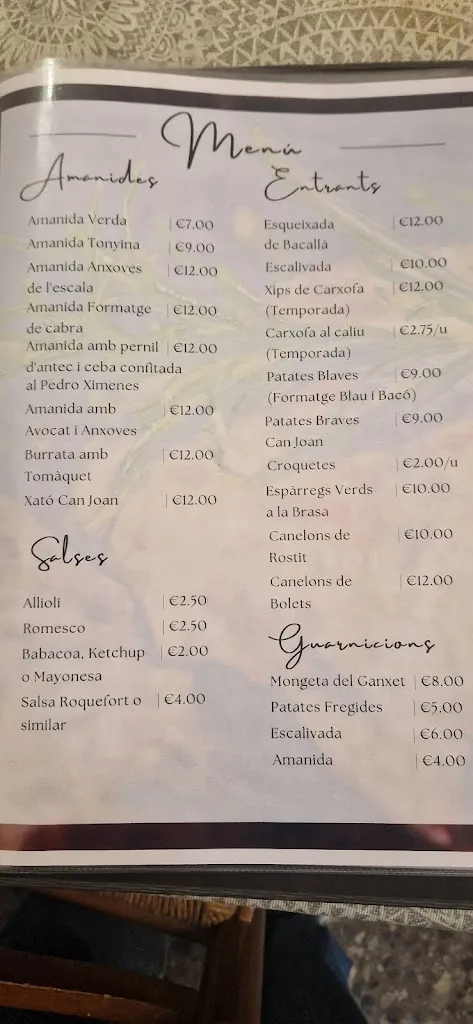 Menú
Amanides
Amanida Verda | €7.00
Amanida Tonyina | €9.00
Amanida Anxoves | €12.00
de l'escala
Amanida Formatge | €12.00
de cabra
Amanida amb pernil | €12.00
d'antec i ceba confitada
al Pedro Ximenes
Amanida amb | €12.00
Avocat i Anxoves
Burrata amb | €12.00
Tomàquet
Xató Can Joan | €12.00
Salses
Allioli | €2.50
Romesco | €2.50
Babacoa, Ketchup | €2.00
o Mayonesa
Salsa Roquefort o | €4.00
similar
Entrants
Esqueixada | €12.00
de Bacallà
Escalivada | €10.00
Xips de Carxofa | €12.00
(Temporada)
Carxofa al caliu | €2.75/u
(Temporada)
Patates Blaves | €9.00
(Formatge Blau i Bacó)
Patates Braves | €9.00
Can Joan
Croquetes | €2.00/u
Espàrregs Verds | €10.00
a la Brasa
Canelons de | €10.00
Rostit
Canelons de | €12.00
Bolets
Guarnicions
Mongeta del Ganxet | €8.00
Patates Fregides | €5.00
Escalivada | €6.00
Amanida | €4.00